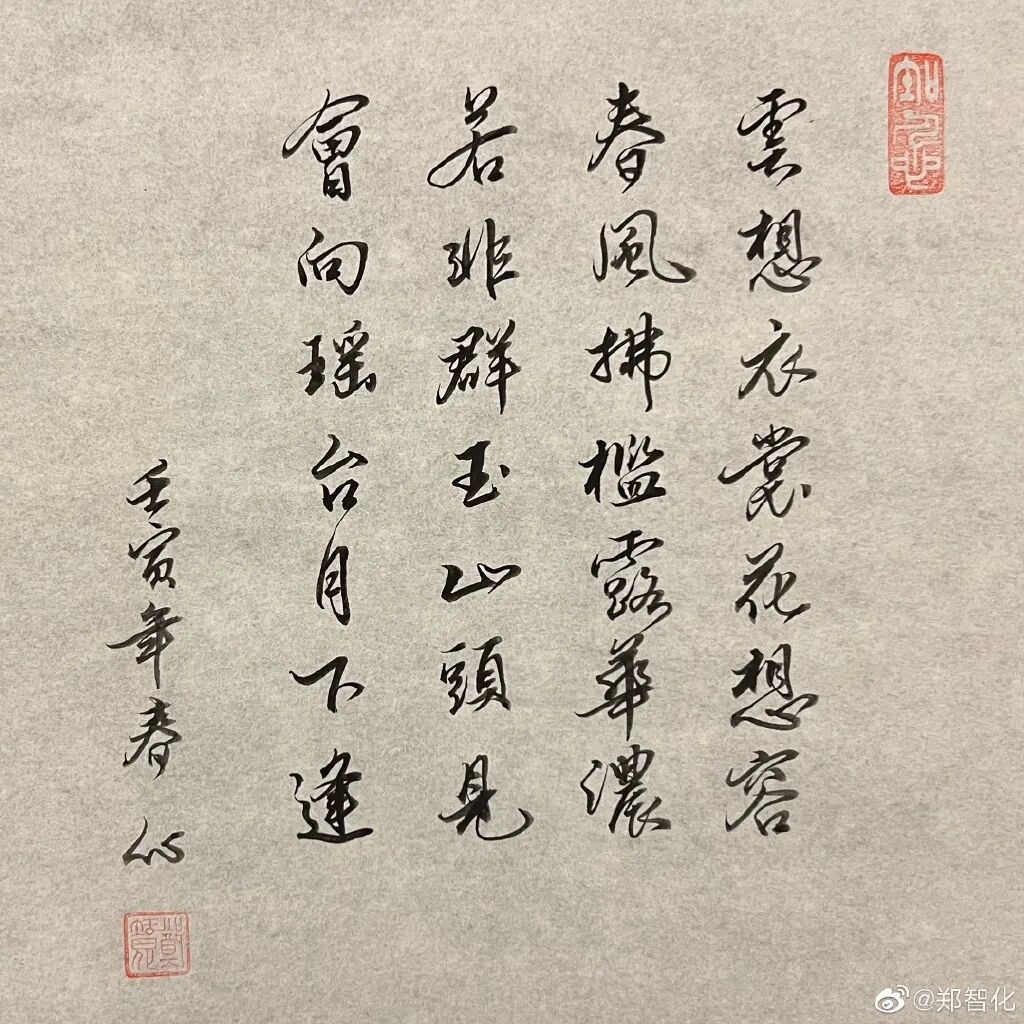 雲想衣裳花想容
春風拂檻露華濃
若非群玉山頭見
會向瑶台月下逢
壬寅年春
@郑智化